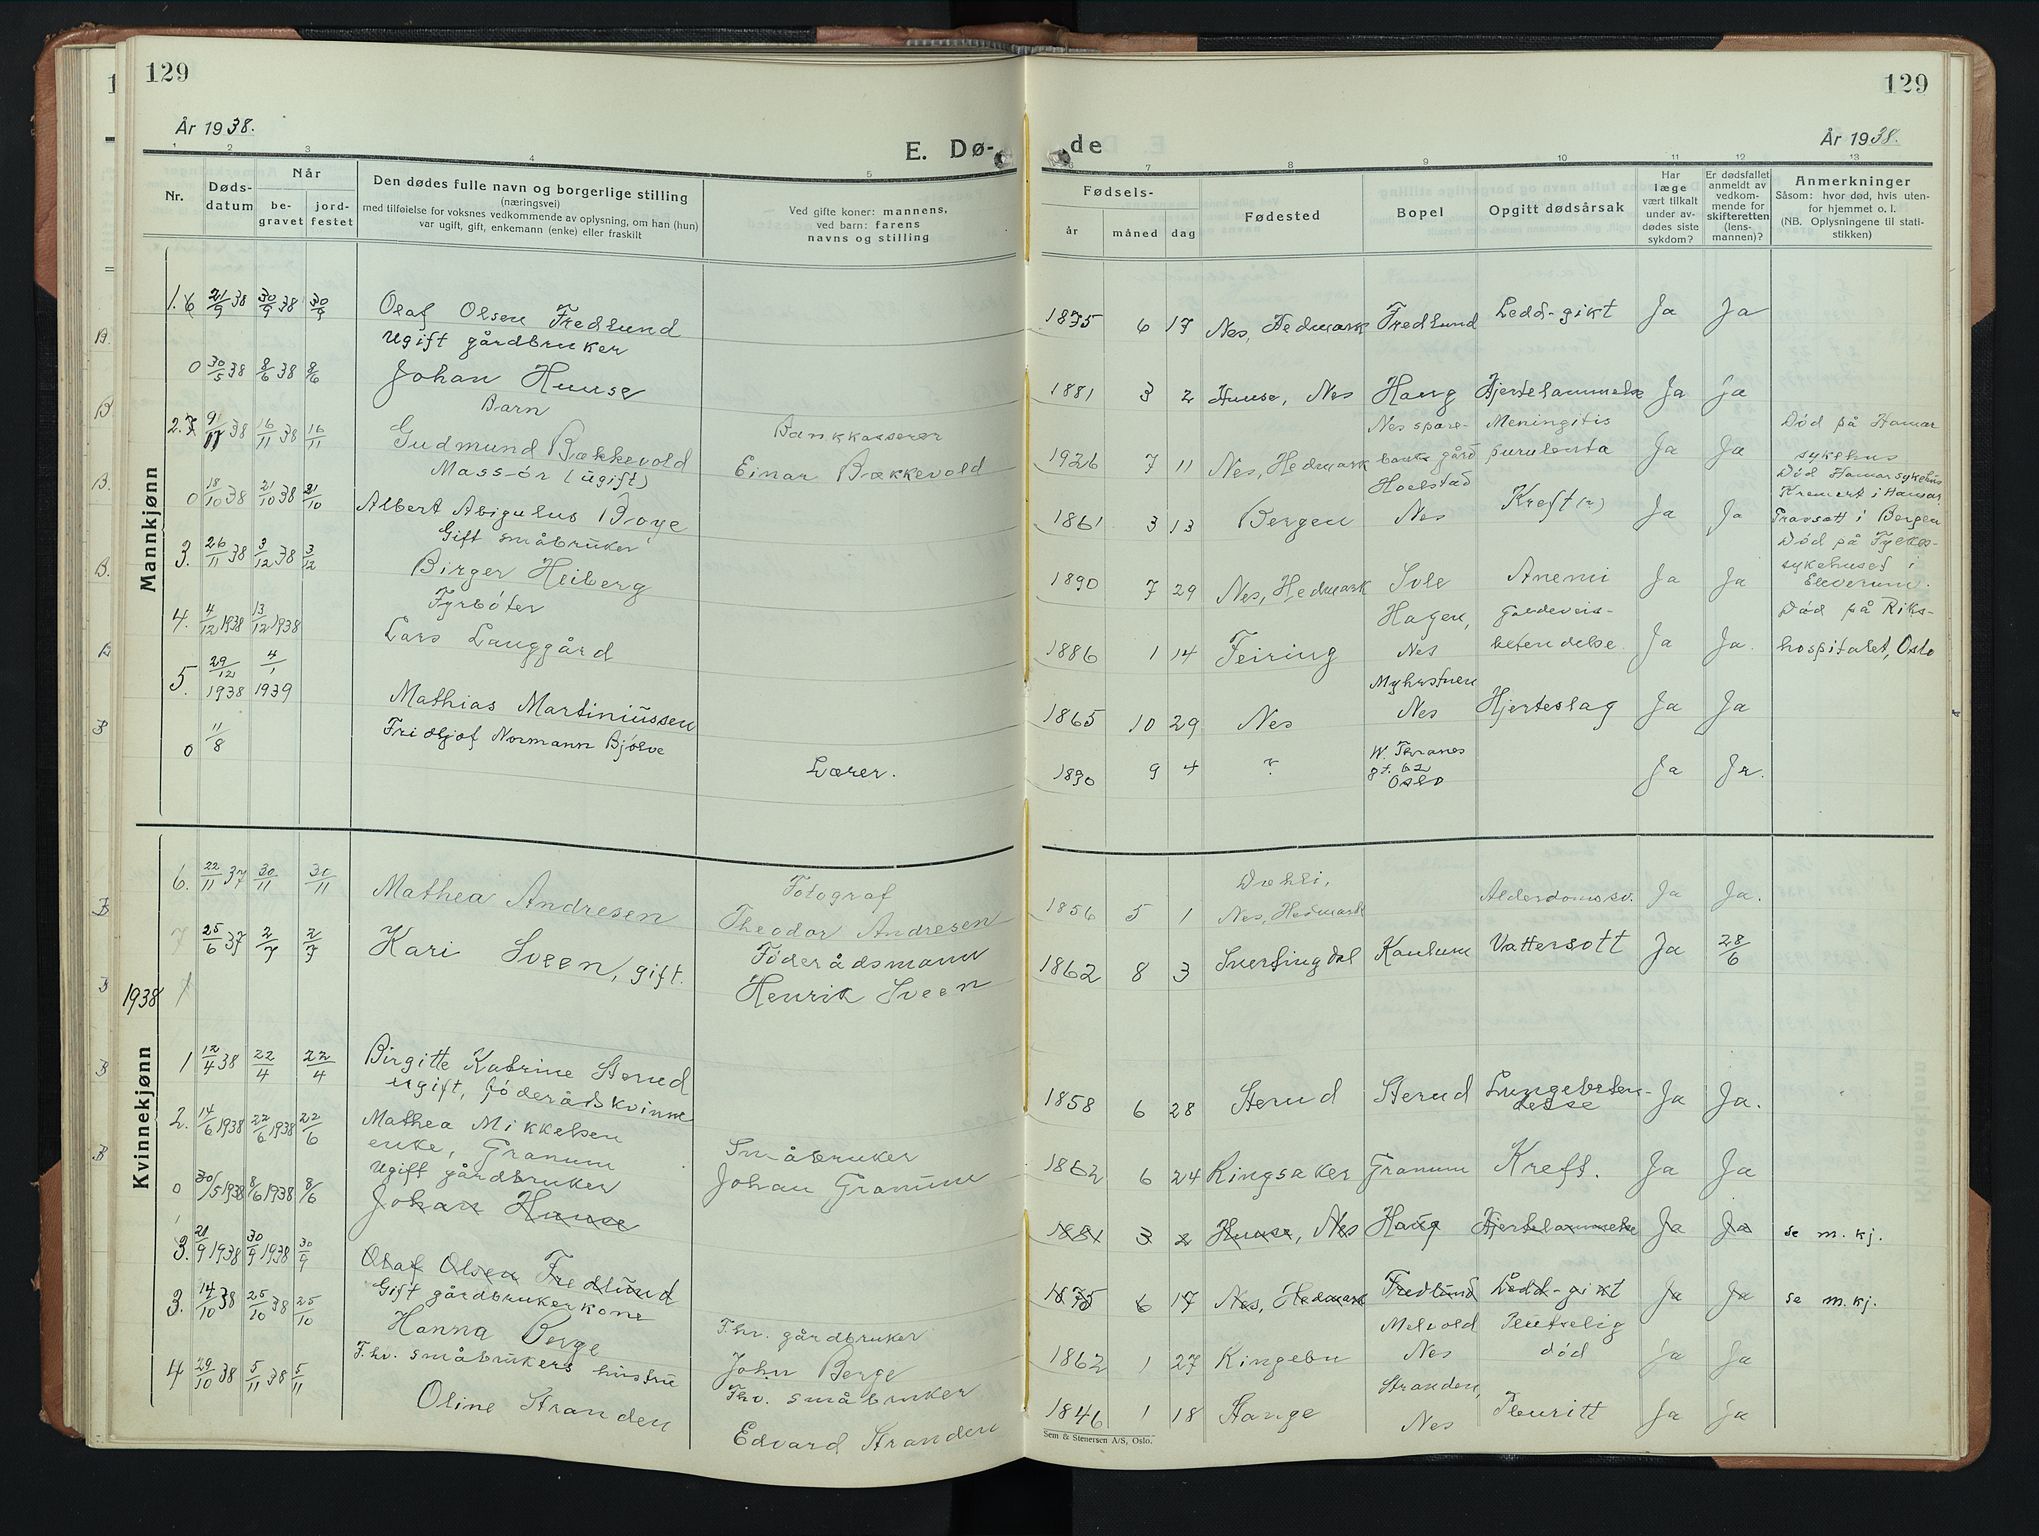 129
129
År 1938.
År 1938.
E. Dø-
de
1 2 3 4 5
7 8 9 10 11 12 13
Nr.
Døds-
datum
Når
be-
gravet
jord-
festet
Den dødes fulle navn og borgerlige stilling
(næringsvei)
med tilføielse for voksnes vedkommende av oplysning, om han (hun)
var ugift, gift, enkemann (enke) eller fraskilt
Ved gifte koner: mannens,
ved barn: farens
navns og stilling
Fødsels-
år
måned
dag
Fødested
Bopel
Opgitt dødsårsak
Har
læge
vært tilkalt
under av-
dødes siste
sykdom?
Er dødsfallet
anmeldt av
vedkom-
mende for
skifteretten
(lens-
mannen)?
Anmerkninger
Såsom: hvor død, hvis uten-
for hjemmet o. l.
(NB. Oplysningene til stati-
stikken)
Mannkjønn
1. 6 21/9 38 30/9 38 30/9 Olaf Olsen Fredlund 1875 6 17 Nes, Hedmark Fredlund Ledd-gikt Ja Ja
Ugift gårdbruker
0 30/5 38 8/6 38 8/6 Johan Huuse 1881 3 2 Huuse, Nes Haug Hjertelammelse Ja Ja
Barn
Bankkasserer
Nes spare- Meningitis Død på Hamar
2. 7 9/11 38 16/11 38 16/11 Gudmund Bækkevold Einar Bækkevold 1926 7 11 Nes, Hedmark bank gård purulenta Ja Ja sykehus
Massør (ugift)
Hoelstad Død Hamar sykehus
Kremert i Hamar
0 18/10 38 21/10 38 21/10 Albert Abigulus Boye 1861 3 13 Bergen Nes Kreft (?) Ja Ja Bergen
Gift småbruker
Død på Fylkes-
3. 26/11 38 3/12 38 3/12 Birger Heiberg 1890 7 29 Nes, Hedmark Svle Anemi Ja Ja sykehuset i
Elverum.
Fyrbøter
Hagen, Død på Riks-
4. 4/12 1938 13/12 1938 Lars Langgård 1886 1 14 Feiring Nes betendelse. Ja Ja. hospitalet, Oslo
5. 29/12 1938 4/1 1939 Mathias Martiniussen 1865 10 29 Nes Nes Hjerteslag Ja Ja
0 11/8 Fridtjof Normann Bjølve Lærer. 1890 9 4 ? W. Thranes
gt. 62
Oslo Ja Ja.
Kvinnekjønn
Fotograf
Dæhli,
6. 22/11 37 30/11 30/11 Mathea Andresen Theodor Andresen 1856 5 1 Nes, Hedmark Alderdomssv. Ja Ja.
7 25/6 37 2/7 2/7 Kari Sveen, gift. Føderådsmann
Henrik Sveen 1862 8 3 Kanlum Vattersott Ja 28/6
1938
1 12/4 38 22/4 22/4 Birgitte Katrine Sterud 1858 6 28 Sterud Sterud Lungebeten-
delse Ja Ja.
ugift, føderådskvinne
2. 14/6 1938 22/6 1938 22/6 Mathea Mikkelsen
enke, Granum Småbruker
Johan Granum 1862 6 24 Ringsaker Granum Kreft. Ja Ja
Ugift gårdbruker
0 30/5 1938 8/6 1938 8/6 Johan Huuse 1881 3 2 Huuse, Nes Haug Hjertelammelse Ja Ja se m. kj.
3. 21/9 1938 30/9 1938 30/9 Olaf Olsen Fredlund 1875 6 17 Nes, Hedmark Fredlund Ledd-gikt Ja Ja se m. kj.
Gift gårdbrukerkone
3. 14/10 38 25/10 38 25/10 Hanna Berge Fhv. gårdbruker
John Berge 1862 1 27 Ringebu Melvold
Nes Plutselig
død Ja Ja
Fhv. småbrukers hustru
4 29/10 38 5/11 38 5/11 Oline Stranden Fhv. småbruker
Edvard Stranden 1846 1 18 Stange Stranden,
Nes Pleuritt Ja Ja
Sem & Stenersen A/S, Oslo.